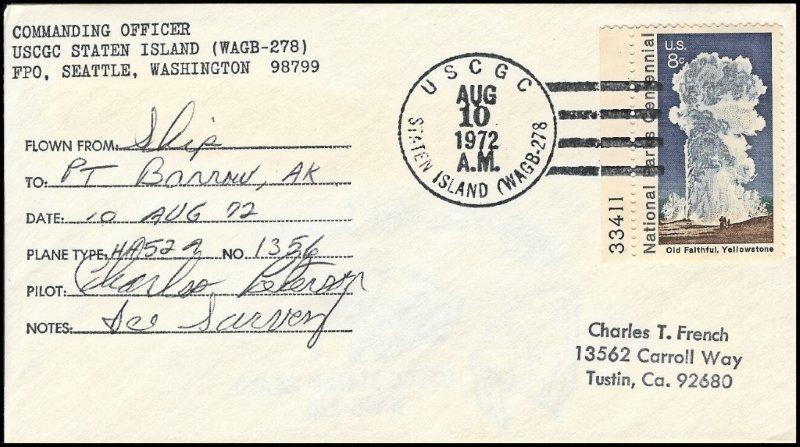 COMMANDING OFFICER
USCGC STATEN ISLAND (WAGB-278)
FPO, SEATTLE, WASHINGTON 98799
FLOWN FROM: Ship
TO: PT Barrow, AK
DATE: 10 AUG 72
PLANE TYPE: HH52A NO. 1356
PILOT: Charles Peterson
NOTES: Ice Survey
USCGC
AUG
10
1972
A.M.
STATEN ISLAND (WAGB-278
33411
National Parks Centennial
U.S.
8c
Old Faithful, Yellowstone
Charles T. French
13562 Carroll Way
Tustin, Ca. 92680